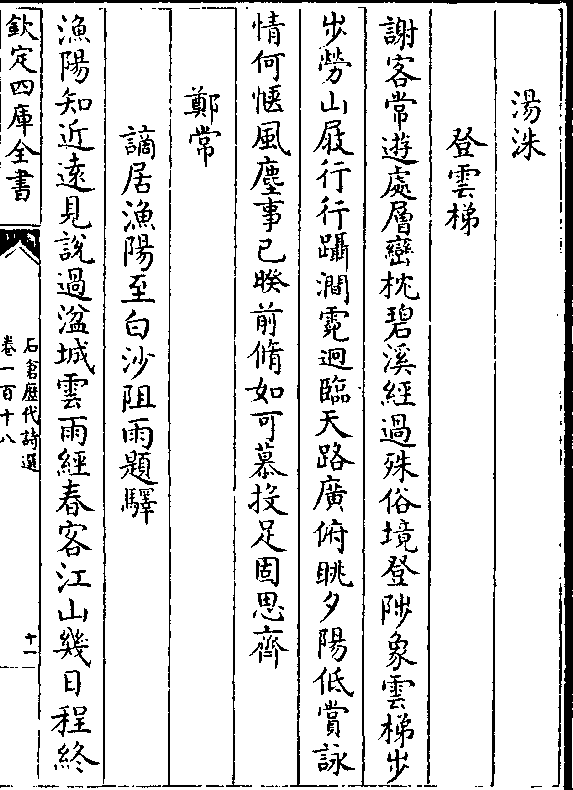 湯洙
登雲梯
謝客常遊處層巒枕碧溪經過殊俗境登陟象雲梯步
步勞山屐行行躡澗霓迥臨天路廣俯眺夕陽低賞詠
情何愜風塵事已暌前脩如可慕投足固思齊
鄭常
謫居漁陽至白沙阻雨題驛
漁陽知近遠見說過湓城雲雨經春客江山幾日程終
欽定四庫全書
石倉歷代詩選
卷一百十八
十一